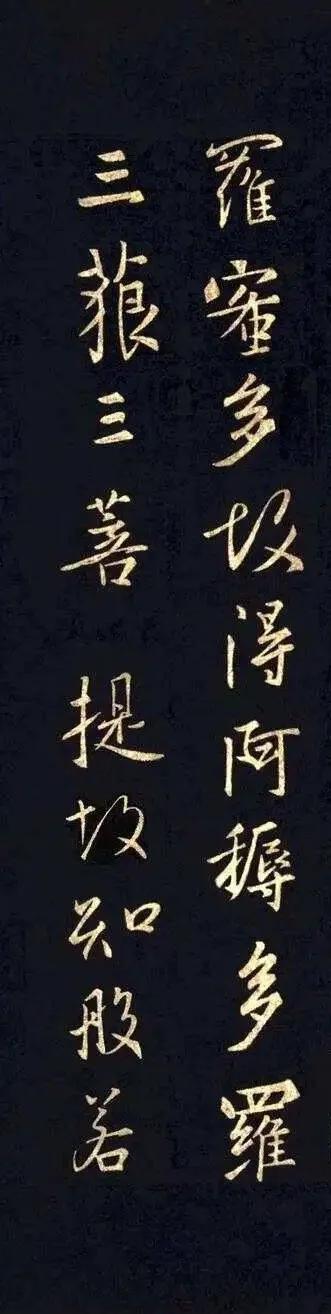 羅蜜多故得阿耨多羅
三藐三菩提故知般若